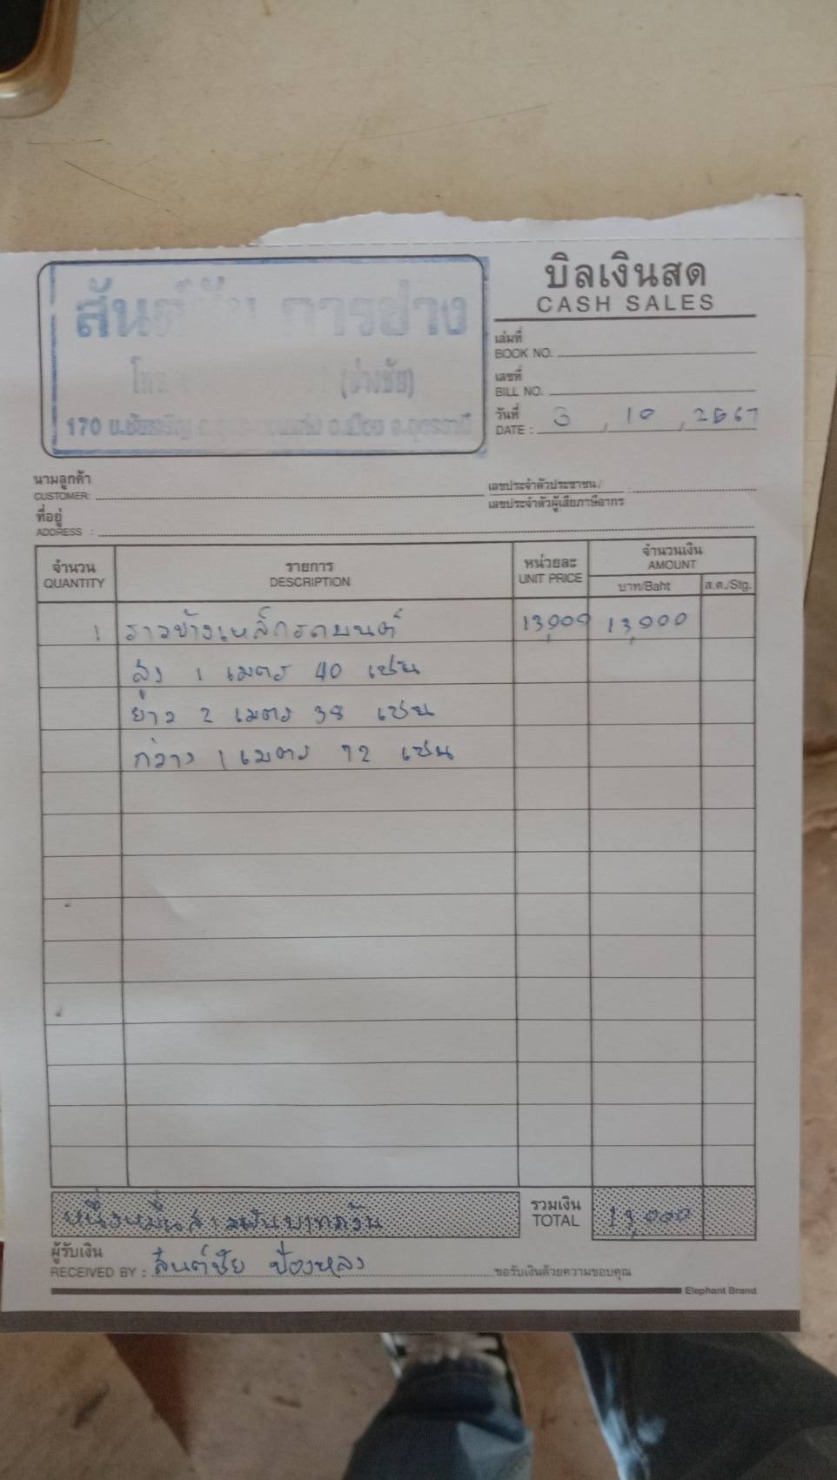 สันต์ชัย การช่าง
บิลเงินสด
CASH SALES
(ช่างชัย)
170 อ.เมือง จ.อุดรธานี
เล่มที่
BOOK NO.
เลขที่
BILL NO.
วันที่
DATE : 3 , 10 , 2567
นามลูกค้า
CUSTOMER:
เลขประจำตัวประชาชน / :
เลขประจำตัวผู้เสียภาษีอากร
ที่อยู่
ADDRESS :
จำนวน รายการ หน่วยละ จำนวนเงิน
QUANTITY DESCRIPTION UNIT PRICE AMOUNT
บาท/Baht ส.ต./Stg.
1 ราวข้างเหล็กรถยนต์ 13,000 13,000
สูง 1 เมตร 40 เซน
ยาว 2 เมตร 38 เซน
กว้าง 1 เมตร 72 เซน
หนึ่งหมื่นสามพันบาทถ้วน
รวมเงิน
TOTAL 13,000
ผู้รับเงิน
RECEIVED BY : สันต์ชัย
ขอรับเงินด้วยความขอบคุณ
Elephant Brand